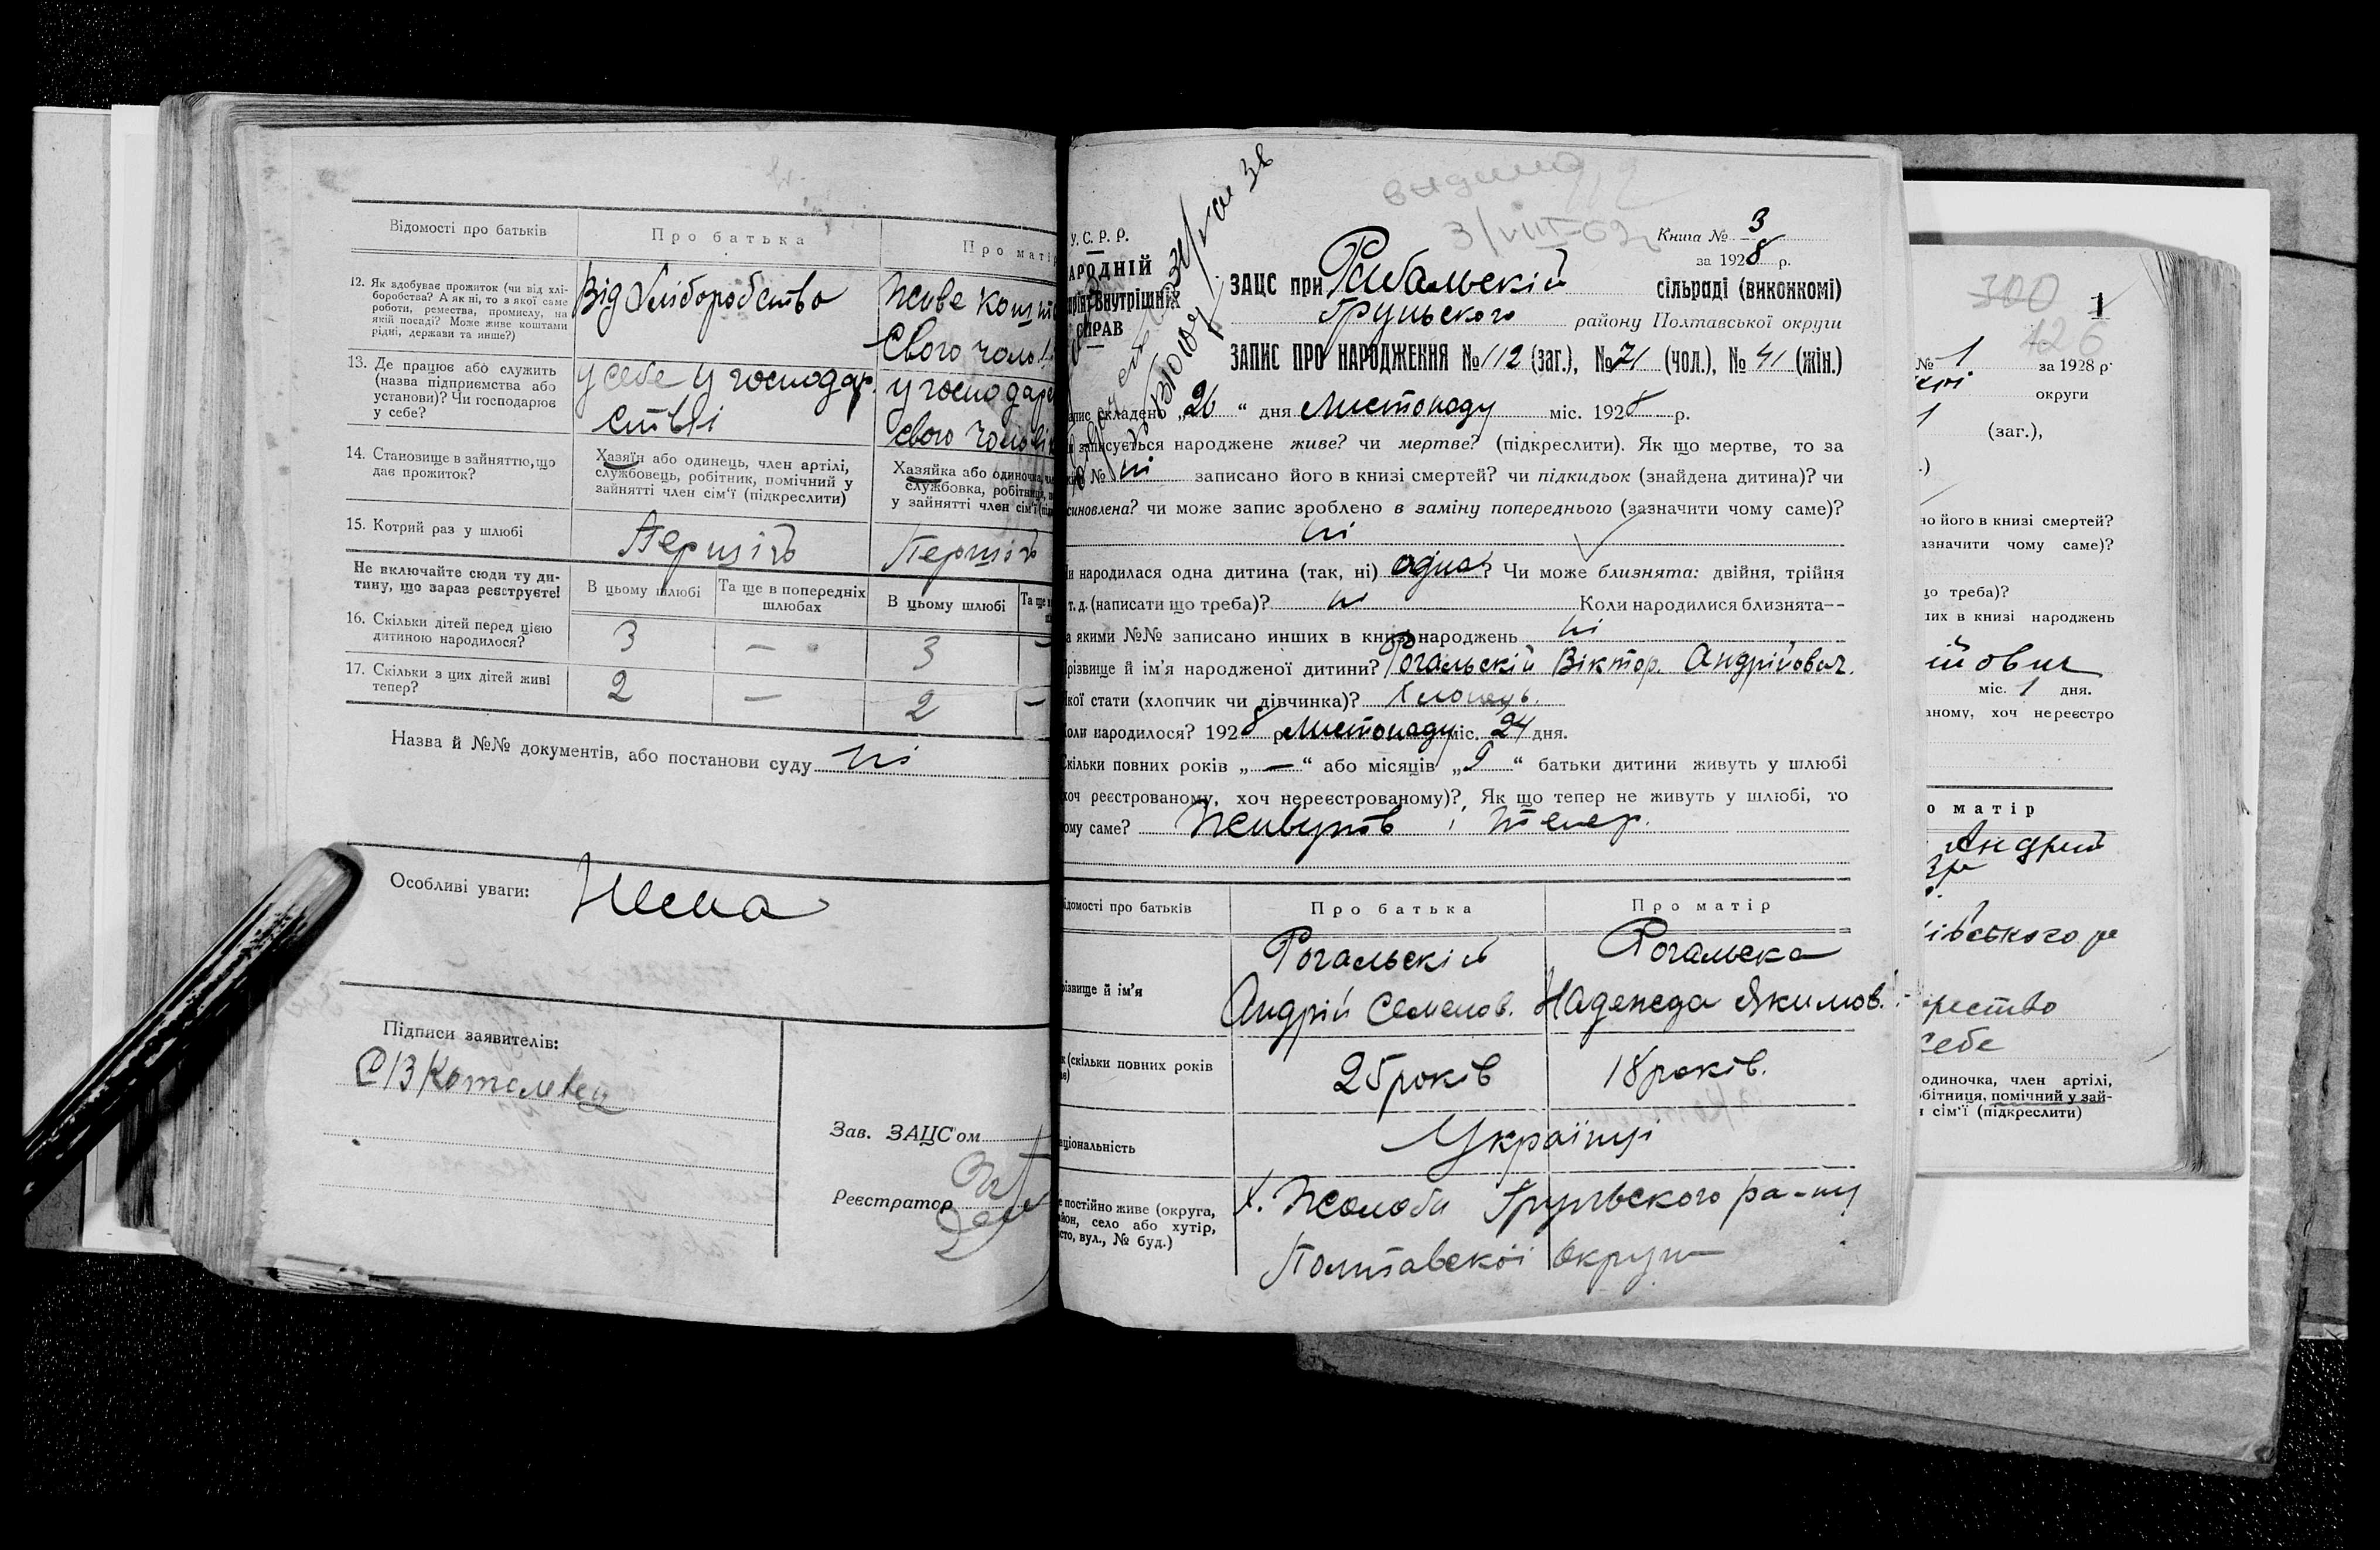 Відомості про батьків
Про батька
Про матір
12. Як здобуває прожиток (чи від хлі-
боробства? А як ні, то з якої саме
роботи, ремества, промислу, на
якій посаді? Може живе коштами
рідні, держави та инше?)
Від Хліборобство
Живе кошт
Свого чоло
13. Де працює або служить
(назва підприємства або
установи)? Чи господарює
у себе?
у себе у господар.
стві
у господар
свого чолові
14. Становище в зайняттю, що
дає прожиток?
Хазяїн або одинець, член артілі,
службовець, робітник, помічний у
зайнятті член сім'ї (підкреслити)
Хазяйка або одиночка,
службовка, робітниця,
у зайнятті член сім'ї
15. Котрий раз у шлюбі
Першій
Першій
Не включайте сюди ту ди-
тину, що зараз реєструєте!
В цьому шлюбі
Та ще в попередніх
шлюбах
В цьому шлюбі
Та ще
16. Скільки дітей перед цією
дитиною народилося?
3 — 3 —
17. Скільки з цих дітей живі
тепер?
2 — 2 —
Назва й №№ документів, або постанови суду ні
Особливі уваги: Нема
Підписи заявителів:
Зав. ЗАЦС'ом
Реєстратор
видано
3/VIII-62
У.С.Р.Р.
АРОДНІЙ
Внутрішніх
СПРАВ
Книга № 3
за 1928 р.
ЗАЦС при Рибальскій сільраді (виконкомі)
Груньского району Полтавської округи
ЗАПИС ПРО НАРОДЖЕННЯ № 112 (заг.), № 71 (чол.), № 41 (жін.)
складено „26“ дня Листопаду міс. 1928 р.
записується народжене живе? чи мертве? (підкреслити). Як що мертве, то за
№ ні записано його в книзі смертей? чи підкидьок (знайдена дитина)? чи
синовлена? чи може запис зроблено в заміну попереднього (зазначити чому саме)?
ні
народилася одна дитина (так, ні) одна? Чи може близнята: двійня, трійня
т. д. (написати що треба)? ні Коли народилися близнята—
за якими №№ записано инших в книзі народжень ні
різвище й ім'я народженої дитини? Рогальскій Віктор. Андрійович.
якої стати (хлопчик чи дівчинка)? Хлопець.
коли народилося? 1928 р. Листопаду міс. 24 дня.
скільки повних років „—“ або місяців „9“ батьки дитини живуть у шлюбі
хоч реєстрованому, хоч нереєстрованому)? Як що тепер не живуть у шлюбі, то
чому саме? Живуть і тепер.
відомості про батьків
Про батька
Про матір
різвище й ім'я
Рогальскій
Андрій Семенов.
Рогальска
Надежда Якимов.
(скільки повних років
25 років
18 років.
аціональність
Українці
постійно живе (округа,
район, село або хутір,
місто, вул., № буд.)
х. Жолоби Груньского ра-ну
Полтавскої округи
300
1
126
№ 1 за 1928 р.
округи
(заг.),
його в книзі смертей?
азначити чому саме)?
що треба)?
их в книзі народжень
йович
міс. 1 дня.
аному, хоч нереєстро
о матір
Андрий
івського р
себе
одиночка, член артілі,
обітниця, помічний у зай-
сім'ї (підкреслити)